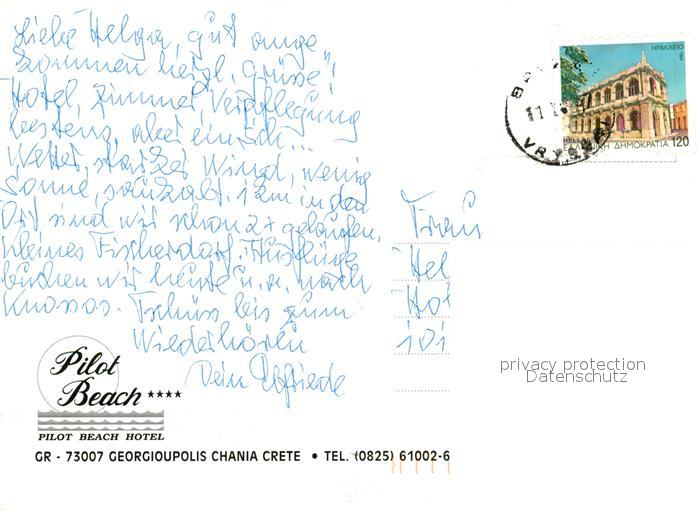 Liebe Helga, gut ange
kommen herzl. Grüsse",
Hotel, Zimmer, Verpflegung
bestens, aber einsch...
Wetter, starker Wind, wenig
Sonne, saukalt. 1 km in den
Ort sind wir schon 2x gelaufen,
kleines Fischerdorf. Ausflüge
buchen wir heute u. a. nach
Knossos. Tschüss bis zum
Wiederhören
Dein
Frau
Hel
Hot
101
ΗΡΑΚΛΕΙΟ
1994
HELLAS
ΕΛΛΗΝΙΚΗ ΔΗΜΟΚΡΑΤΙΑ 120
11
privacy protection
Datenschutz
Pilot
Beach ****
PILOT BEACH HOTEL
GR - 73007 GEORGIOUPOLIS CHANIA CRETE • TEL. (0825) 61002-6